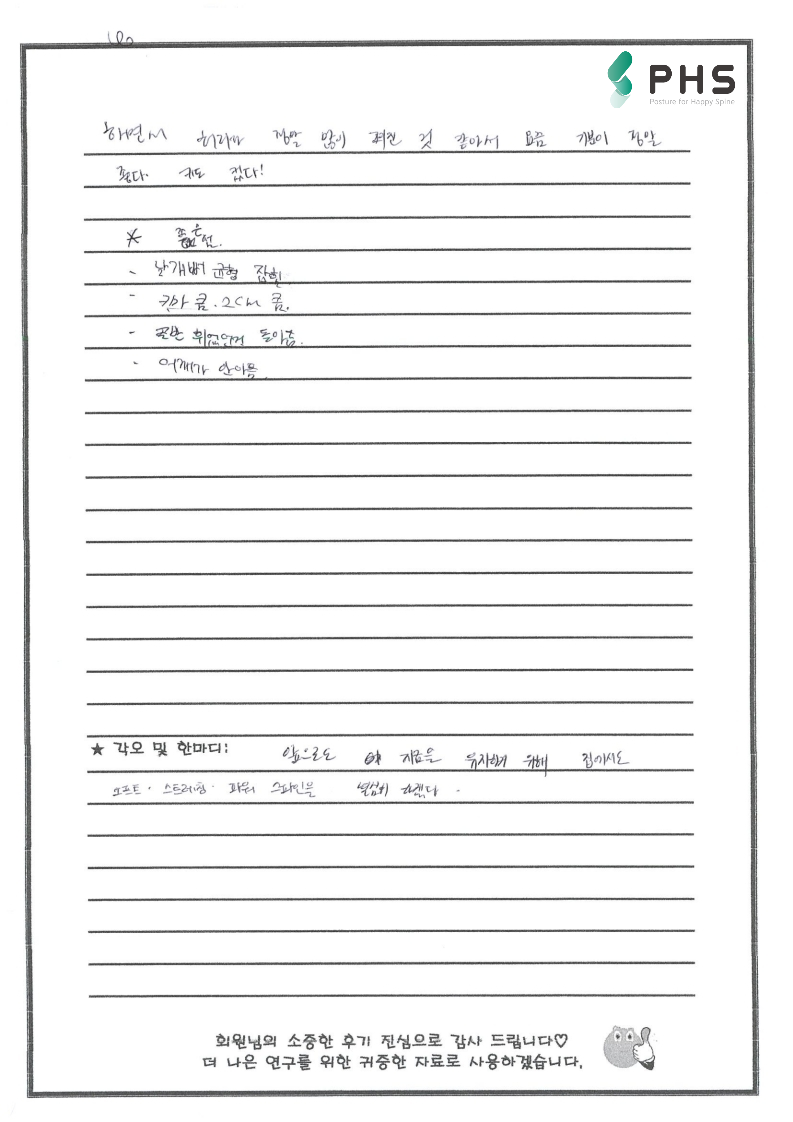 PHS
Posture for Happy Spine
하면서 허리가 정말 많이 펴진 것 같아서 요즘 기분이 정말
좋다. 키도 컸다!
* 좋은점.
- 날개뼈 균형 잡힘.
- 키가 큼. 2cm 큼.
- 골반 휘었던거 돌아옴.
- 어깨가 안아픔.
★ 각오 및 한마디: 앞으로도 지금을 유지하기 위해 집에서도
소프트 · 스트레칭 · 파워 스파인을 열심히 하겠다.
회원님의 소중한 후기 진심으로 감사 드립니다♡
더 나은 연구를 위한 귀중한 자료로 사용하겠습니다.